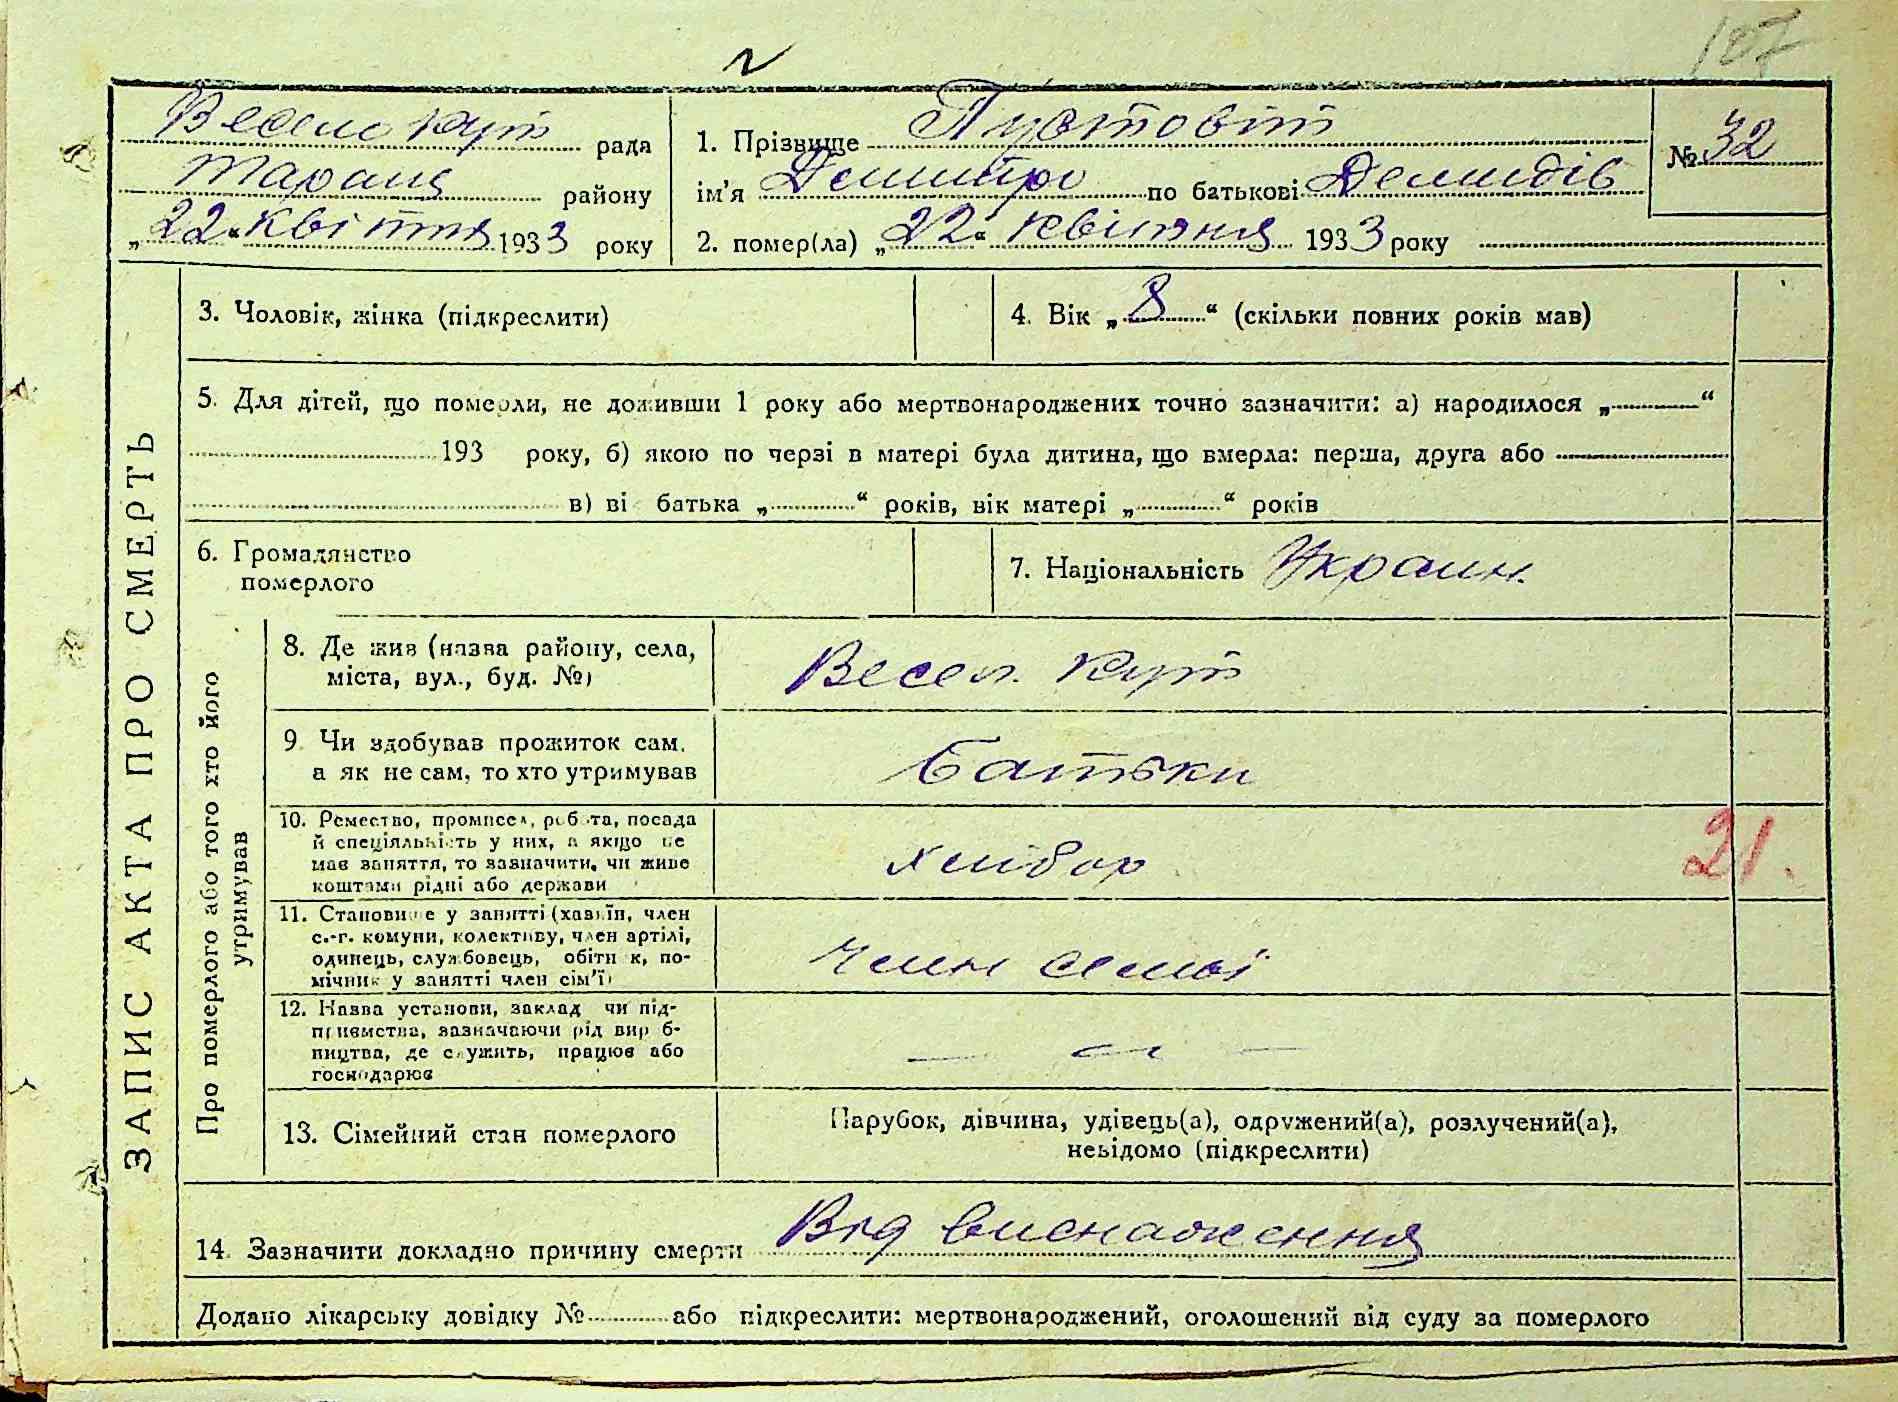 187
Весело Кут рада
Таращ району
„22“ квітня 1933 року
1. Прізвище Пустовіт
ім'я Дмитро по батькові Демидів
2. помер(ла) „22“ квітня 1933 року
№ 32
ЗАПИС АКТА ПРО СМЕРТЬ
3. Чоловік, жінка (підкреслити)
4. Вік „8“ (скільки повних років мав)
5. Для дітей, що померли, не доживши 1 року або мертвонароджених точно зазначити: а) народилося „ “
193 року, б) якою по черзі в матері була дитина, що вмерла: перша, друга або
в) ві батька „ “ років, вік матері „ “ років
6. Громадянство
померлого
7. Національність Украин.
Про померлого або того хто його
утримував
8. Де жив (назва району, села,
міста, вул., буд. №)
Весел. Кут
9 Чи здобував прожиток сам,
а як не сам, то хто утримував
Батьки
10. Ремество, промисел, робота, посада
й спеціяльність у них, а якщо не
мав заняття, то зазначити, чи живе
коштами рідні або держави
хлібор
21.
11. Становище у занятті (хазяїн, член
с.-г. комуни, колективу, член артілі,
одинець, службовець, обітник, по-
мічник у занятті член сім'ї)
Член семьі
12. Назва установи, заклад чи під-
приємства, зазначаючи рід вироб-
ництва, де служить, працює або
господарює
13. Сімейний стан померлого
Парубок, дівчина, удівець(а), одружений(а), розлучений(а),
невідомо (підкреслити)
14. Зазначити докладно причину смерти Від виснаження
Додано лікарську довідку № або підкреслити: мертвонароджений, оголошений від суду за померлого